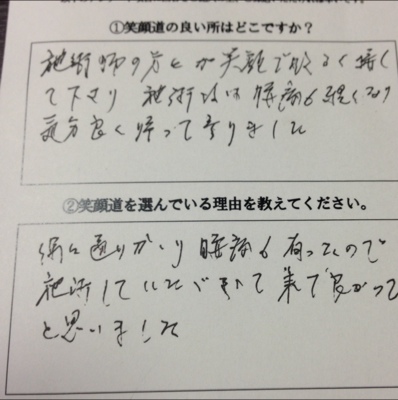 ①笑顔道の良い所はどこですか？
施術師の方々が笑顔で明るく接し
て下さり 施術後は腰痛も軽くなり
気分良く帰って参りました
②笑顔道を選んでいる理由を教えてください。
通りかかり 腰痛も有ったので
施術していただいて 来て良かった
と思いました